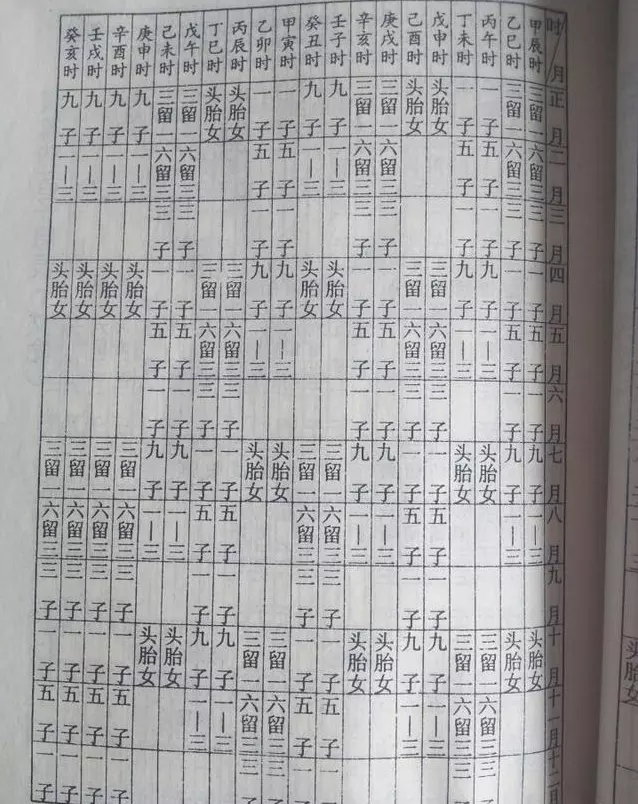 时/月 正月 二月 三月 四月 五月 六月 七月 八月 九月 十月 十一月 十二月
甲辰时 三留一 六留三 三子 一子 五子 一子 九子 一|三 头胎女
乙巳时 三留一 六留三 三子 一子 五子 一子 九子 一|三 头胎女
丙午时 一子 五子 一子 九子 一|三 头胎女 三留一 六留三 三
丁未时 一子 五子 一子 九子 一|三 头胎女 三留一 六留三 三
戊申时 头胎女 三留一 六留三 三子 一子 五子 一子 九子 一|三
己酉时 头胎女 三留一 六留三 三子 一子 五子 一子 九子 一|三
庚戌时 三留一 六留三 头胎女
辛亥时 三留一 六留三 头胎女
壬子时 九子 一|三 头胎女 三留一 六留三 三子 一子 五子 一子
癸丑时 九子 一|三 头胎女 三留一 六留三 三子 一子 五子 一子
甲寅时 一子 五子 一子 九子 一|三 头胎女 三留一 六留三 三
乙卯时 一子 五子 一子 九子 一|三 头胎女 三留一 六留三 三
丙辰时 头胎女 三留一 六留三 三子 一子 五子 一子 九子 一|三
丁巳时 头胎女 三留一 六留三 三子 一子 五子 一子 九子 一|三
戊午时 三留一 六留三 三子 一子 五子 一子 九子 一|三 头胎女
己未时 三留一 六留三 三子 一子 五子 一子 九子 一|三 头胎女
庚申时 九子 一|三 头胎女 三留一 六留三 三子 一子 五子 一子
辛酉时 九子 一|三 头胎女 三留一 六留三 三子 一子 五子 一子
壬戌时 九子 一|三 头胎女 三留一 六留三 三子 一子 五子 一子
癸亥时 九子 一|三 头胎女 三留一 六留三 三子 一子 五子 一子